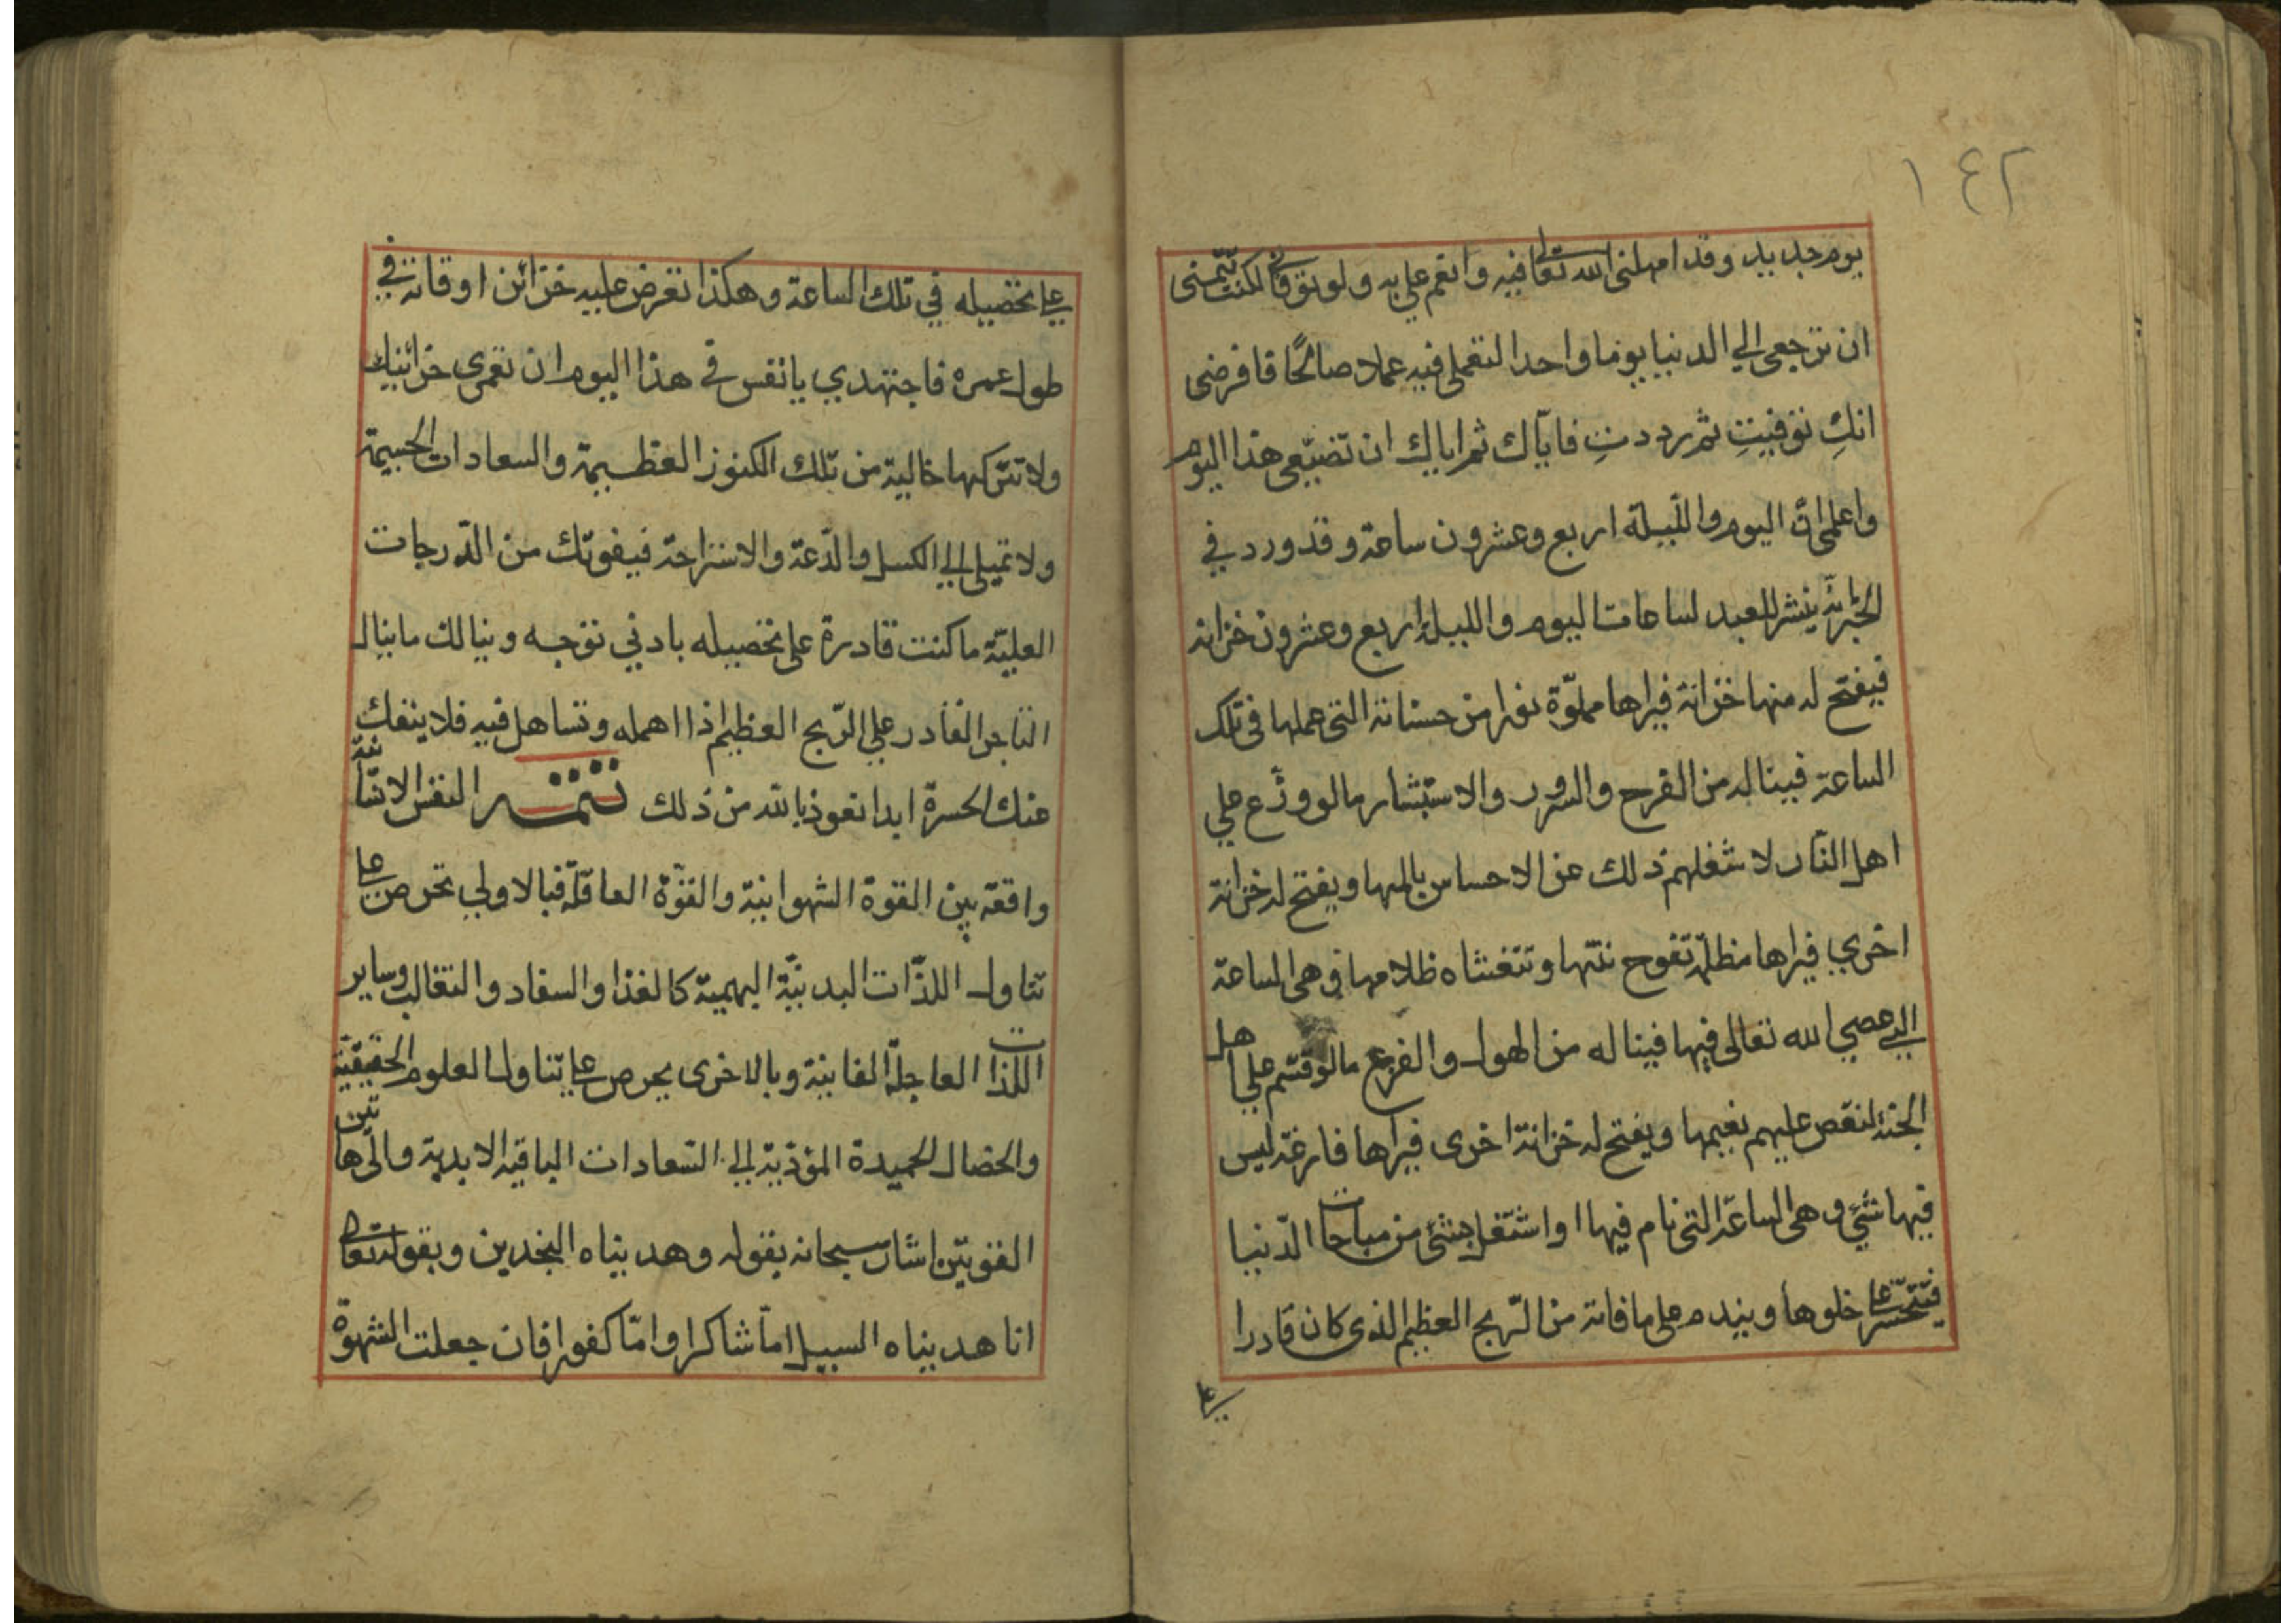 ١٤٢
يوم جديد وقد امهلني الله تعالى فيه وانعم علي به ولو توفاني لكنت تتمنى
ان ترجعي الي الدنيا يوما واحدا لتعملي فيه عملا صالحًا فافرضى
انكِ توفيتِ ثم رددتِ فايّاك ثم اياك ان تضيّعى هذا اليوم
واعلمى انّ اليوم واللّيلة اربع وعشرون ساعة وقد ورد في
الخبر انّه ينشر للعبد لساعات اليوم والليل اربع وعشرون خزانة
فيفتح له منها خزانة فيراها مملوّة نورا من حسناته التى عملها فى تلك
الساعة فيناله من الفرح والسرور والاستبشار ما لو وزّع علي
اهل النّار لاشغلهم ذلك عن الاحساس بالمها ويفتح له خزانة
اخري فيراها مظلمة تفوح نتنها وتتغشاه ظلامها وهى الساعة
التي عصي الله تعالى فيها فيناله من الهول والفزع ما لو قسّم علي اهل
الجنة لنقص عليهم نعيمها ويفتح له خزانة اخرى فيراها فارغة ليس
فيها شئ وهى الساعة التى نام فيها او اشتغل بشئ من مباحات الدّنيا
فيتحسّر علي خلوها ويندم على ما فاته من الرّبح العظيم الذى كان قادرا
علي
علي تحصيله في تلك الساعة وهكذا تعرض عليه خزائن اوقاته في
طول عمره فاجتهدي يا نفس في هذا اليوم ان تعمرى خزائنك
ولا تتركها خالية من تلك الكنوز العظيمة والسعادات الجسيمة
ولا تميلى الي الكسل والدّعة والاستراحة فيفوتك من الدّرجات
العليّة ما كنت قادرة على تحصيله بادني توجه وينالك ما ينال
التاجر القادر علي الرّبح العظيم اذا اهمله وتساهل فيه فلا ينفك
عنك الحسرة ابدا نعوذ بالله من ذلك تتمة النفس الانسانية
واقعة بين القوة الشهوانية والقوّة العاقلة فبالاولي تحرص على
تناول اللذّات البدنيّة البهمية كالغذا والسفاد والتغالب وساير
اللذات العاجلة الفانية وبالاخرى يحرص على تناول العلوم الحقيقيّة
والخصال الحميدة المؤدّية الي السّعادات الباقية الابدية والى هاتين
القوتين اشار سبحانه بقوله وهديناه النجدين وبقوله تعالى
انا هديناه السبيل امّا شاكرا وامّا كفورا فان جعلت الشهوة